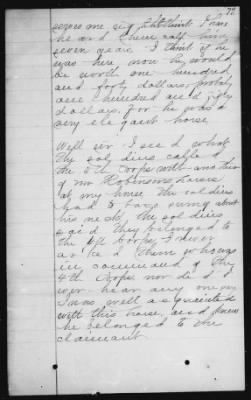 72
he and
seven years I think if he
was here now he would
be worth one hundred
and forty dollars, probly
one hundred and fifty
dollars, for he was a
very elegant horse
Well sir I seed what
the soldiers called
the 4th Corps with
of mr Robinsons horses
at my house The soldiers
had to
his neck, the soldiers
said they belonged to
the 4th Corps I never
asked them who was
in command of the
4th Corps nor did I
ever hear any one say
I was well acquainted
with this horse, and knew
he belonged to the
claimant